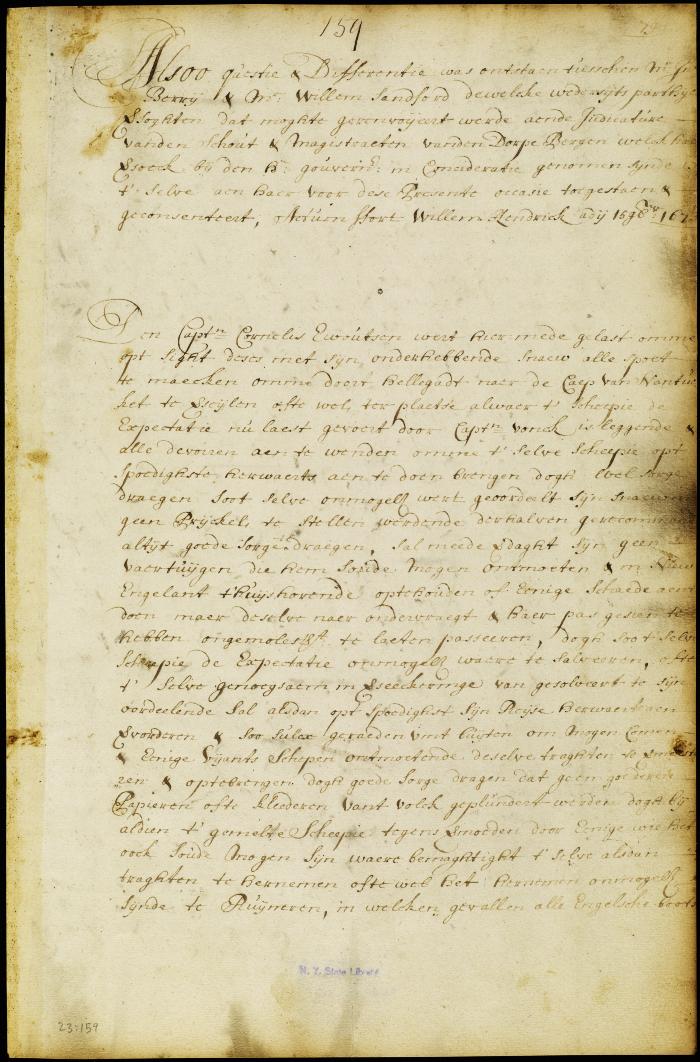 159
Alsoo questie & Differentie was ontstaen tusschen Mr.
Berrij & Mr. Willem Sandford dewelcke wedersijts parthije
Versoghten dat moghte gerenvoijeert werde aende Judicature
vanden Schout & Magistraeten vanden Dorpe Bergen welck
Versoeck bij den Hr. gouvernr. in Consideratie genomen sijnde
t' selve aen haer voor dese Presente occasie toegestaen &
geconsenteert, Actum ffort Willem Hendrick adij
Den Capt.n Cornelis Ewoutsen wert hier mede gelast omme
opt sight deses met sijn onderhebbende Snauw alle spoet
te maecken omme door't hellegadt naer de Caep van Nantuc
ket te Zeijlen ofte wel ter plaetse alwaer t' scheepie de
Expectatie nu laest gevoert door Capt.n vonck is leggende &
alle devoiren aen te wenden omme t' selve scheepie opt
spoedighste herwaerts aen te doen brengen dogh wel sorge
draegen soot selve onmogelk wert geoordeelt sijn snauw
geen Prijckel te stellen werdende derhalven gerecomman
altijt goede sorge te draegen, sal meede verdaght sijn geen
vaertuijgen die hem soude mogen ontmoeten & in Nieuw
Engelant t'huijshorende optehouden of eenige schaede aen
doen maer deselve naer ondervraegt & haer pas gesien te
hebben ongemolesteert te laeten passeeren, dogh soo't selve
Scheepie de Expectatie onmogelk waere te salveeren, ofte
t' selve genoegsaem in verseeckeringe van gesalveert te sijn
oordeelende sal alsdan opt spoedighst sijn Reijse herwaerts aen
Vervorderen & soo sulcx geraeden vint buijten om mogen Comen
& Eenige Vijants Schepen ontmoetende deselve traghten te
ren & optebrengen dogh goede sorge dragen dat geen goederen
Papieren ofte kleederen vant volck geplundert werden dogh bij
aldien t' gemelte Scheepie tegens vermoeden door Eenige wie het
oock soude mogen sijn waere bemaghtight t' selve alsdan
traghten te hernemen ofte wel het hernemen onmogelk
sijnde te Ruijneren, in welcken gevallen alle Engelsche boots
N. Y. State Library
23:159